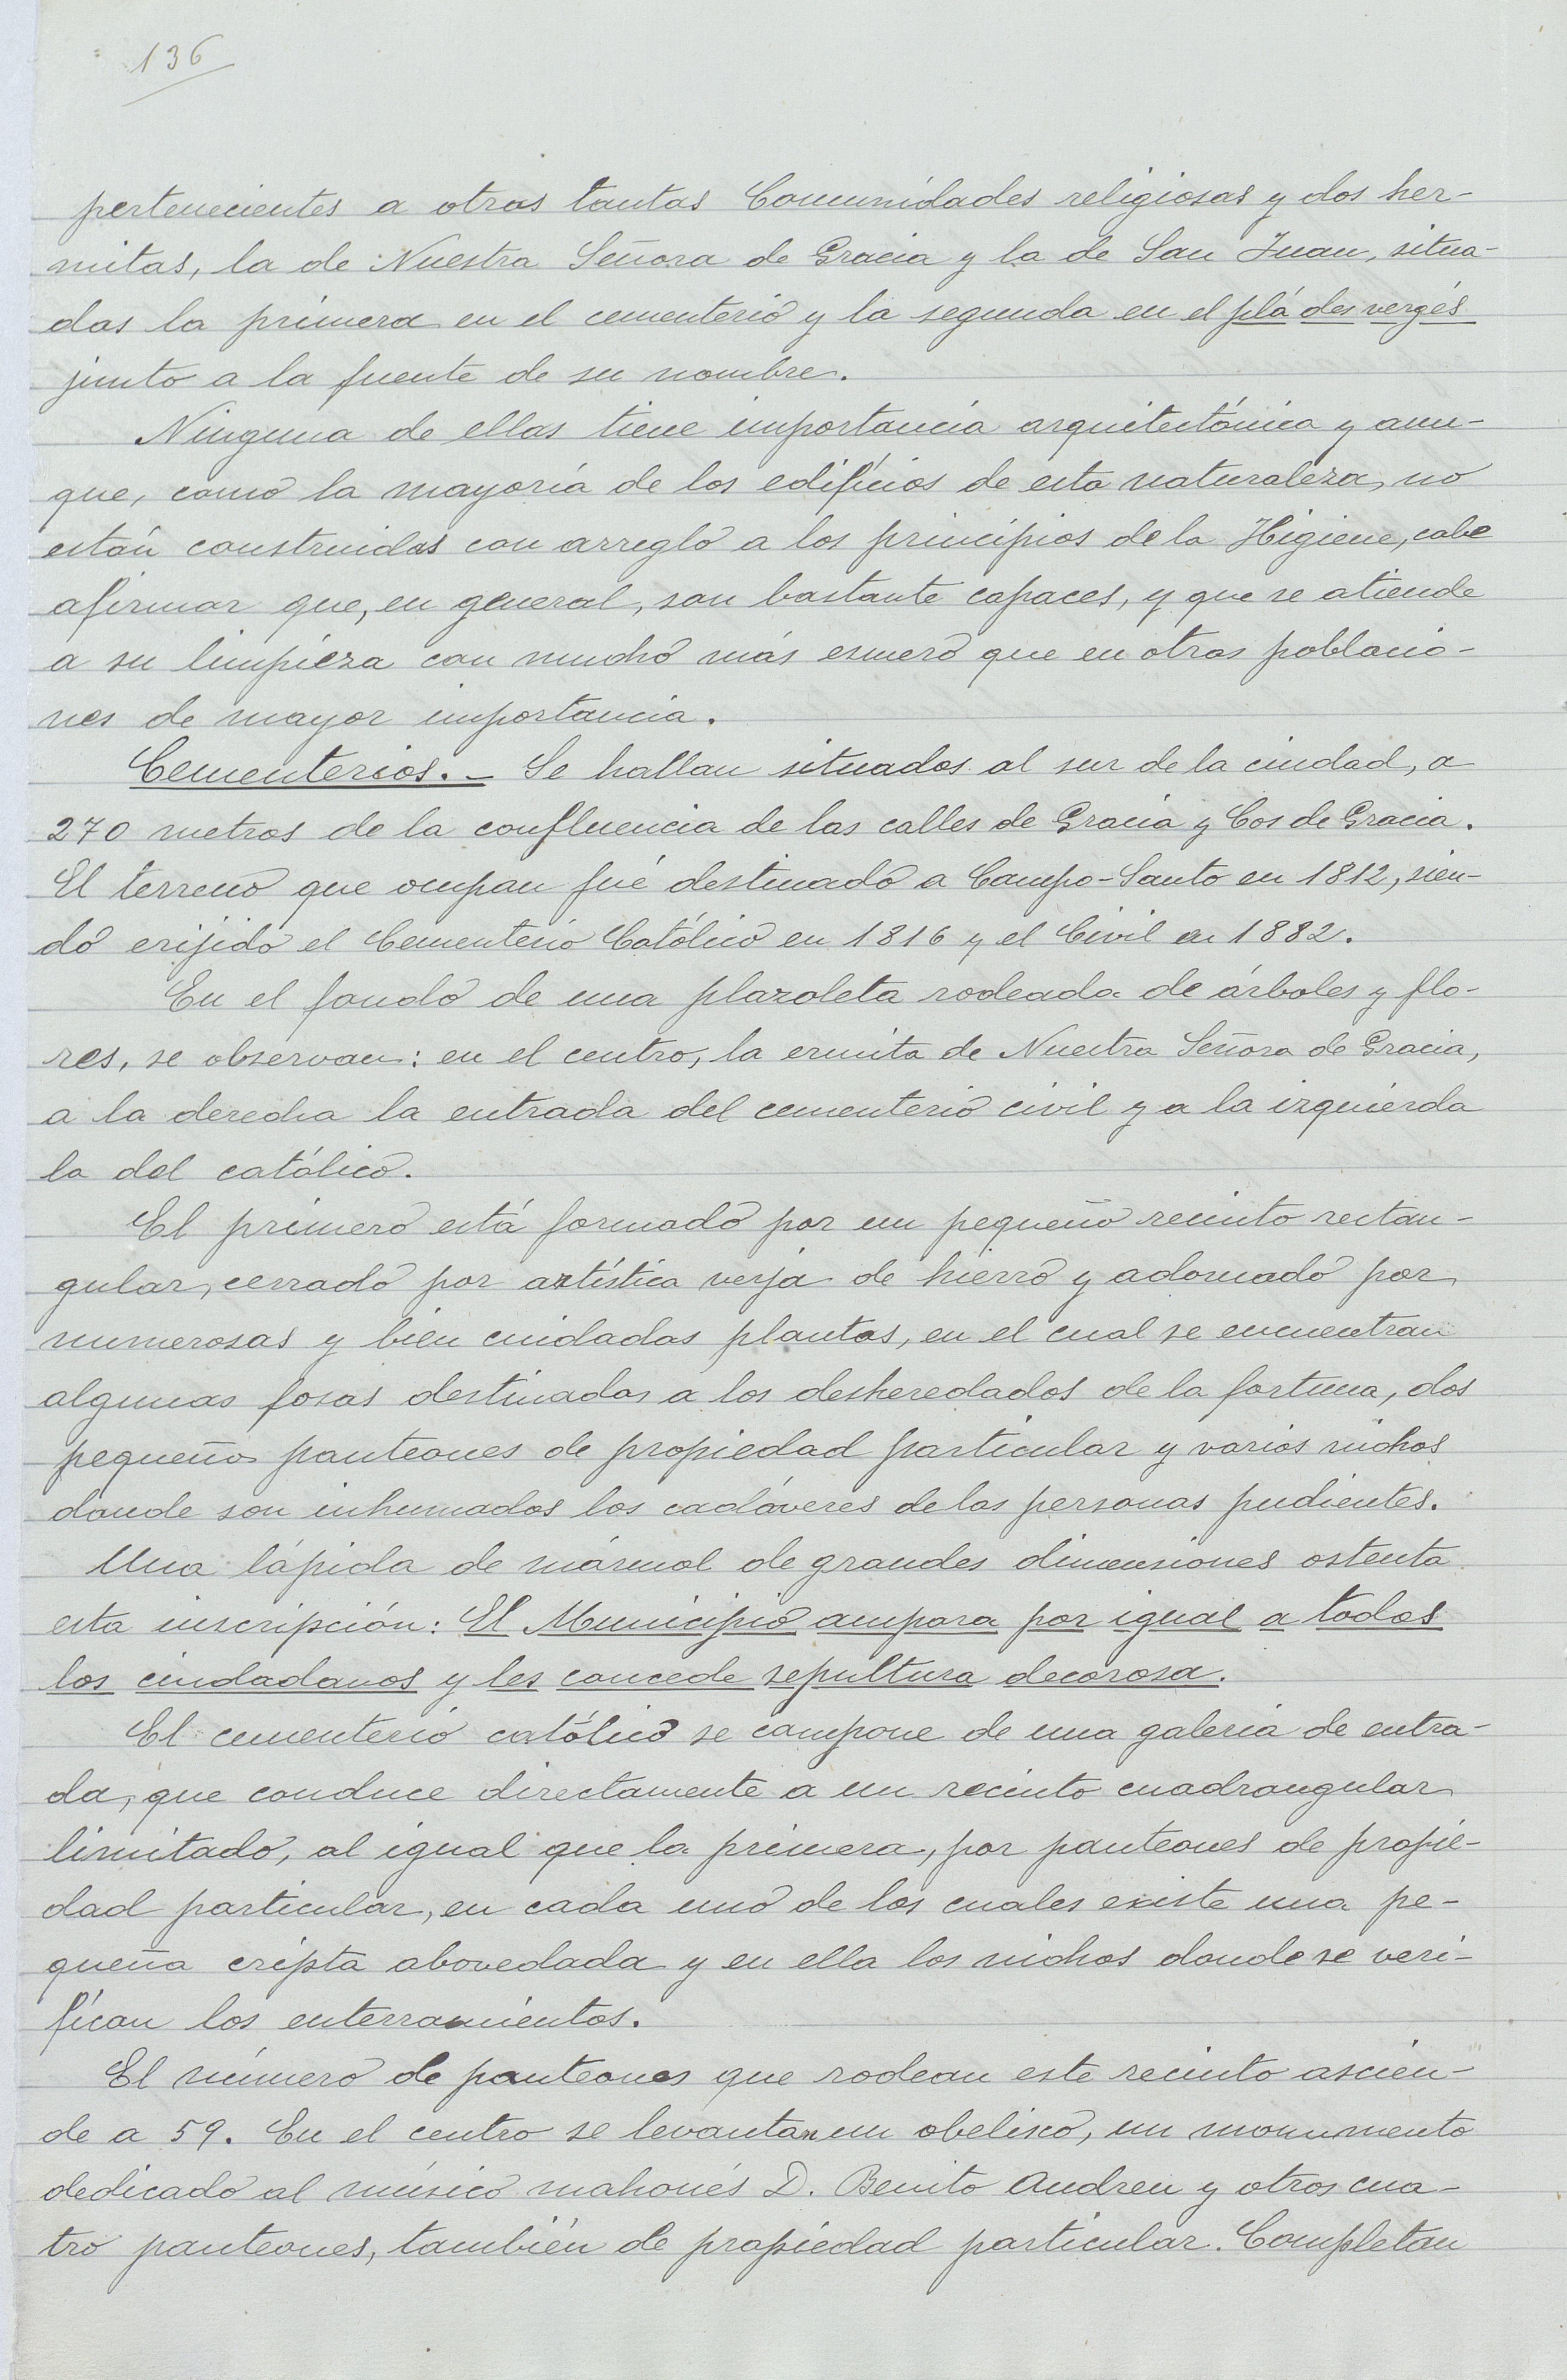 136
pertenecientes a otras tantas Comunidades religiosas y dos her-
mitas, la de Nuestra Señora de Gracia y la de San Juan, situa-
das la primera en el cementerio y la segunda en el plá des vergés
junto a la fuente de su nombre.
Ninguna de ellas tiene importancia arquitectónica y aun-
que, como la mayoría de los edificios de esta naturaleza, no
están construidas con arreglo a los principios de la Higiene, cabe
afirmar que, en general, son bastante capaces, y que se atiende
a su limpieza con mucho más esmero que en otras poblacio-
nes de mayor importancia.
Cementerios. - Se hallan situados al sur de la ciudad, a
270 metros de la confluencia de las calles de Gracia y Cos de Gracia.
El terreno que ocupan fué destinado a Campo-Santo en 1812, sien-
do erijido el Cementerio Católico en 1816 y el Civil en 1882.
En el fondo de una plazoleta rodeada de árboles y flo-
res, se observan: en el centro, la ermita de Nuestra Señora de Gracia,
a la derecha la entrada del cementerio civil y a la izquierda
la del católico.
El primero está formado por un pequeño recinto rectan-
gular, cerrado por artística verja de hierro y adornado por
numerosas y bien cuidadas plantas, en el cual se encuentran
algunas fosas destinadas a los desheredados de la fortuna, dos
pequeños panteones de propiedad particular y varios nichos
donde son inhumados los cadáveres de las personas pudientes.
Una lápida de mármol de grandes dimensiones ostenta
esta inscripción: El Municipio ampara por igual a todos
los ciudadanos y les concede sepultura decorosa.
El cementerio católico se compone de una galeria de entra-
da, que conduce directamente a un recinto cuadrangular
limitado, al igual que la primera, por panteones de propie-
dad particular, en cada uno de los cuales existe una pe-
queña cripta abovedada y en ella los nichos donde se veri-
fican los enterramientos.
El número de panteones que rodean este recinto ascien-
de a 59. En el centro se levantan un obelisco, un monumento
dedicado al músico mahonés D. Benito Andreu y otros cua-
tro panteones, también de propiedad particular. Completan